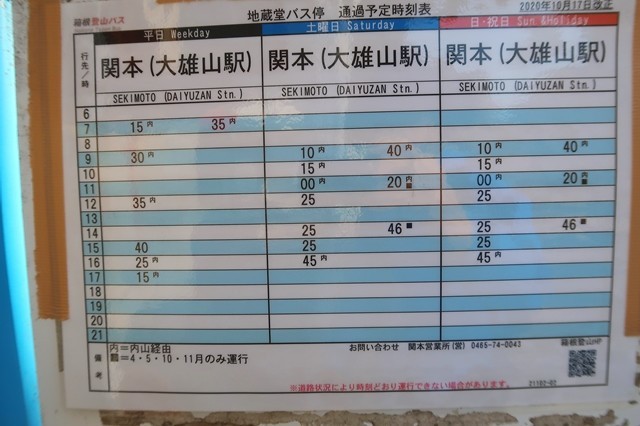 箱根登山バス 地蔵堂バス停 通過予定時刻表 2020年10月17日改正
行先/時 平日 Weekday 土曜日 Saturday 日・祝日 Sun &Holiday
関本(大雄山駅) 関本(大雄山駅) 関本(大雄山駅)
SEKIMOTO (DAIYUZAN Stn.) SEKIMOTO (DAIYUZAN Stn.) SEKIMOTO (DAIYUZAN Stn.)
6
7 15内 35内
8
9 30内 10内 40内 10内 40内
10 15内 15内
11 00内 20内 00内 20内
12 35内 25 25
13
14 25 46 25 46
15 40 25 25
16 25内 45内 45内
17 15内
18
19
20
21
備考 内=内山経由 お問い合わせ 関本営業所(営) 0465-74-0043 箱根登山HP
=4・5・10・11月のみ運行
※道路状況により時刻どおり運行できない場合があります。 21102-02